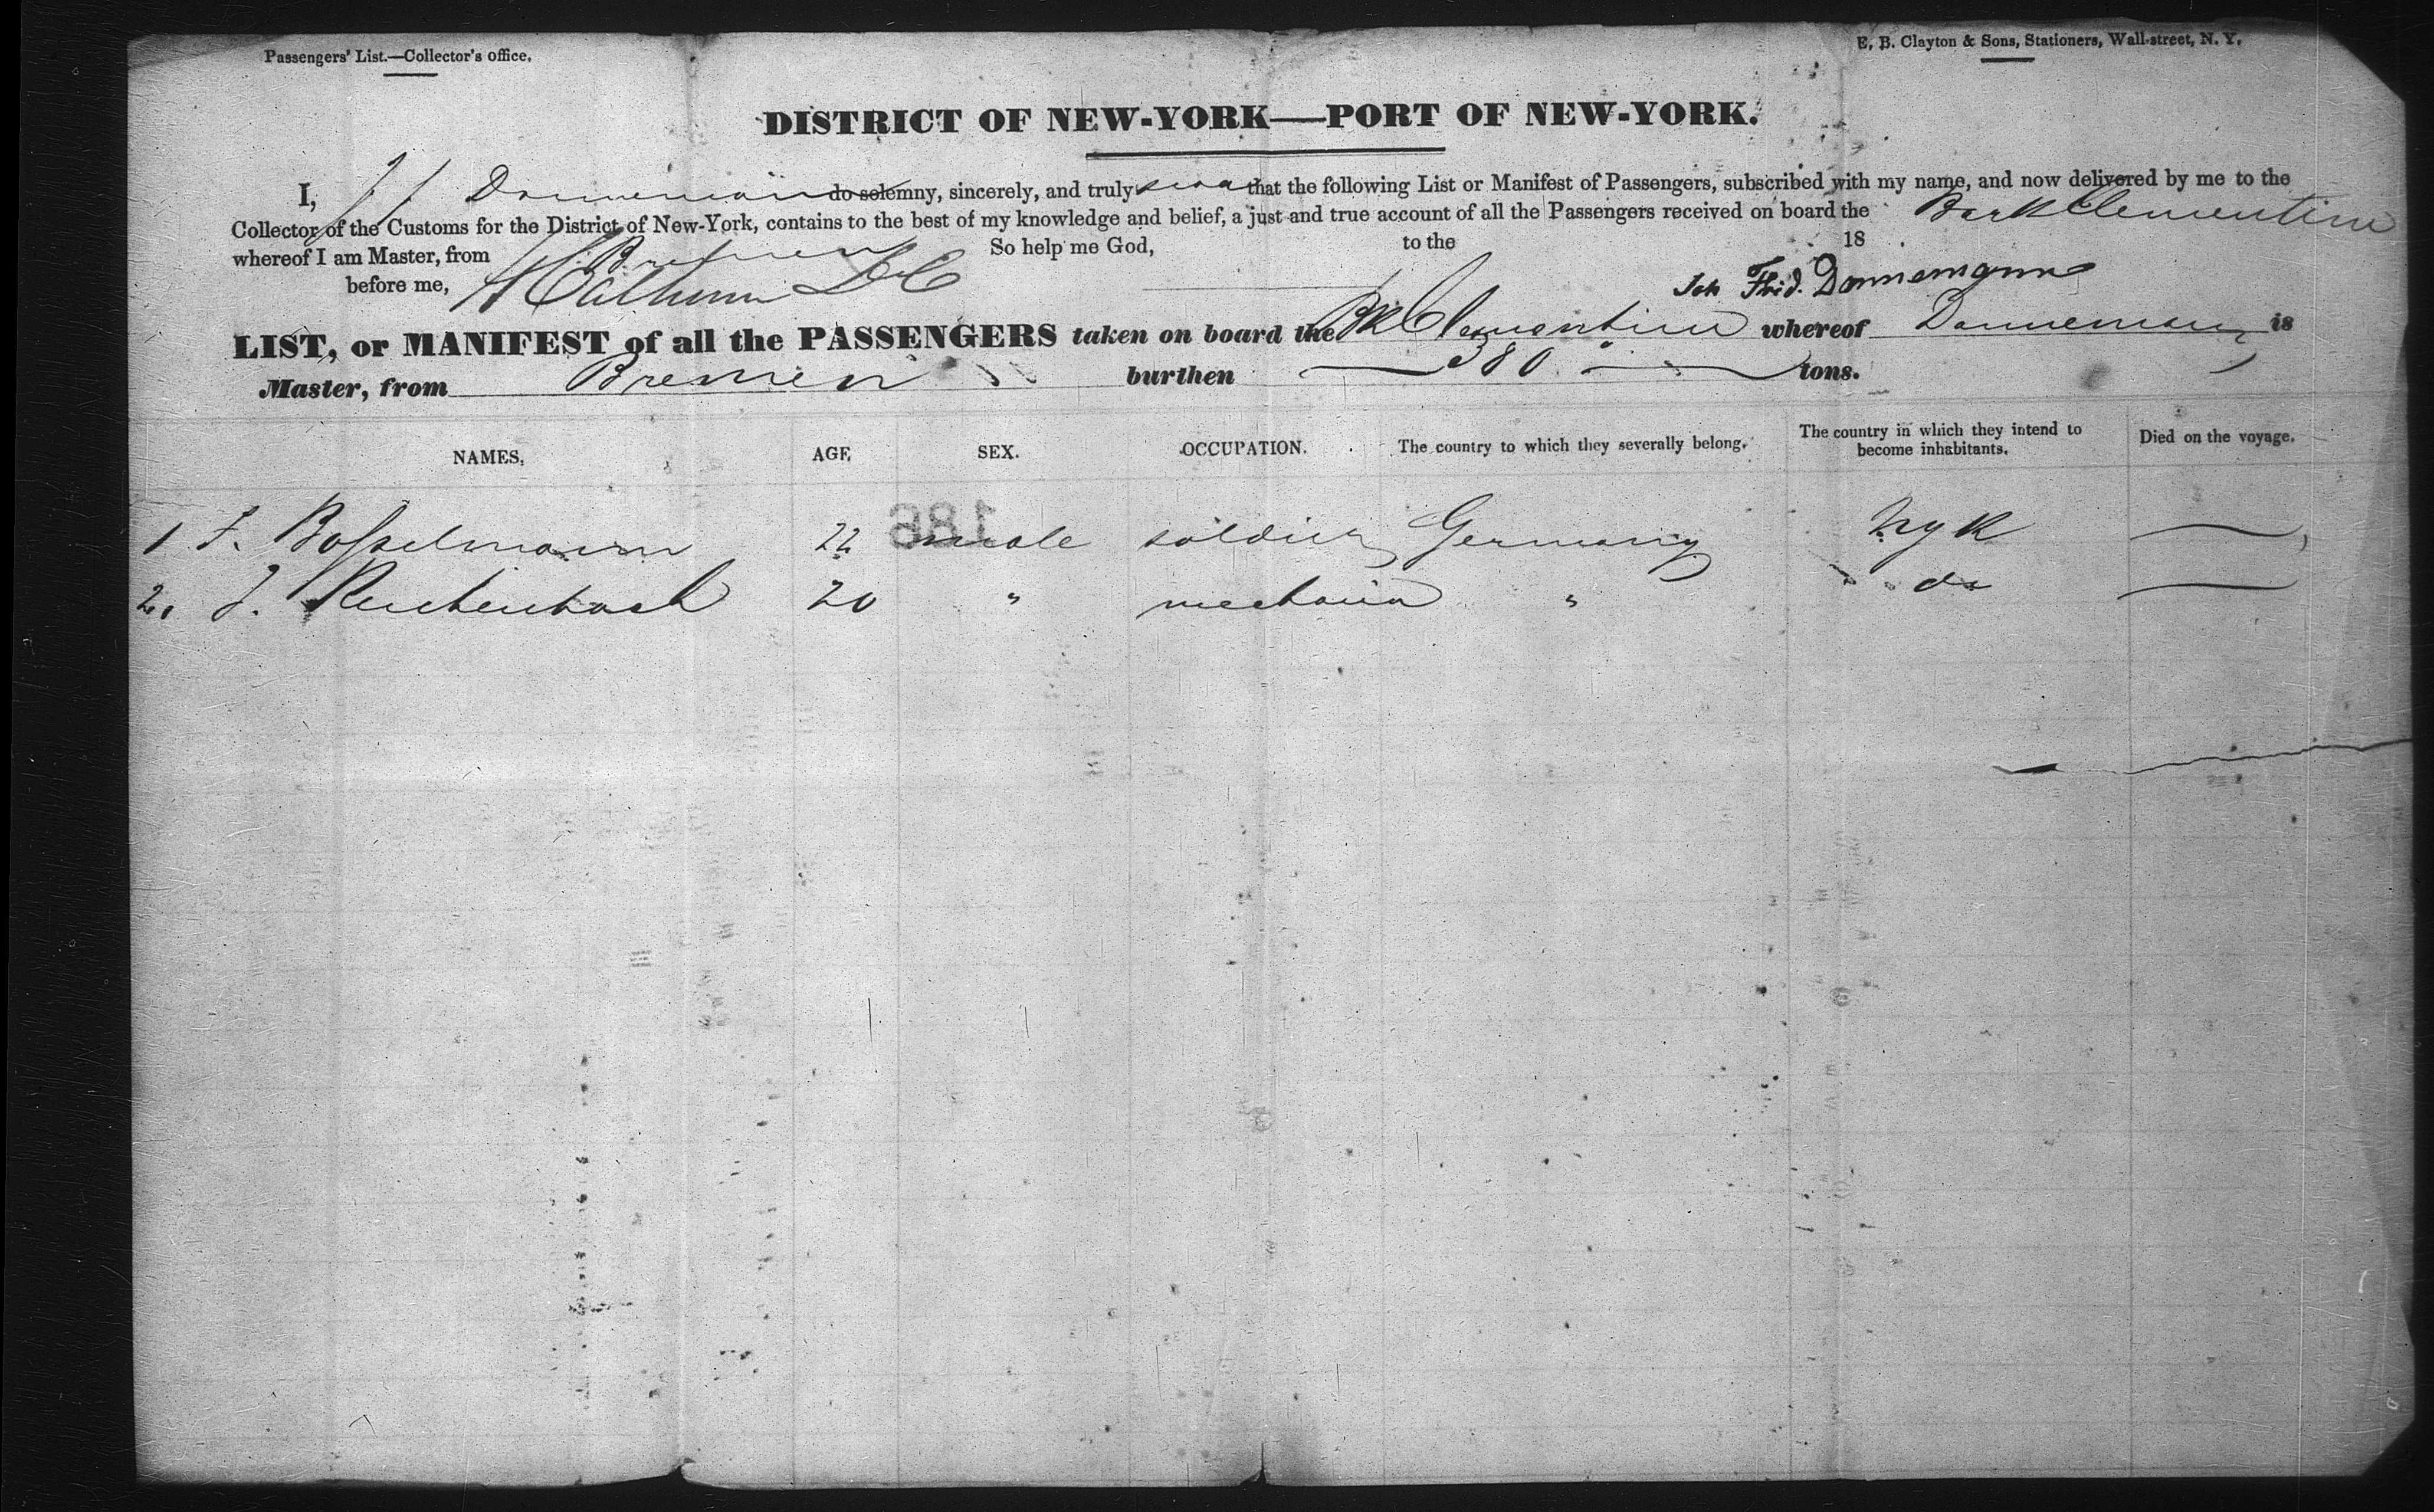 Passengers' List.—Collector's office.
E. B. Clayton & Sons, Stationers, Wall-street, N. Y.
DISTRICT OF NEW-YORK—PORT OF NEW-YORK.
I, J F Dannemann do solemny, sincerely, and truly swear that the following List or Manifest of Passengers, subscribed with my name, and now delivered by me to the
Collector of the Customs for the District of New-York, contains to the best of my knowledge and belief, a just and true account of all the Passengers received on board the Bark Clementine
whereof I am Master, from Bremen So help me God, to the 18 .
before me, Calhoun Joh Frid. Dannemann
LIST, or MANIFEST of all the PASSENGERS taken on board the Bk Clementine whereof Dannemann is
Master, from Bremen burthen 380 tons.
NAMES. AGE SEX. OCCUPATION. The country to which they severally belong. The country in which they intend to become inhabitants. Died on the voyage.
186
1 F. Bosselmann 22 male soldier Germany NYk —
2. J. Reichenbach 20 " mechanic " do —